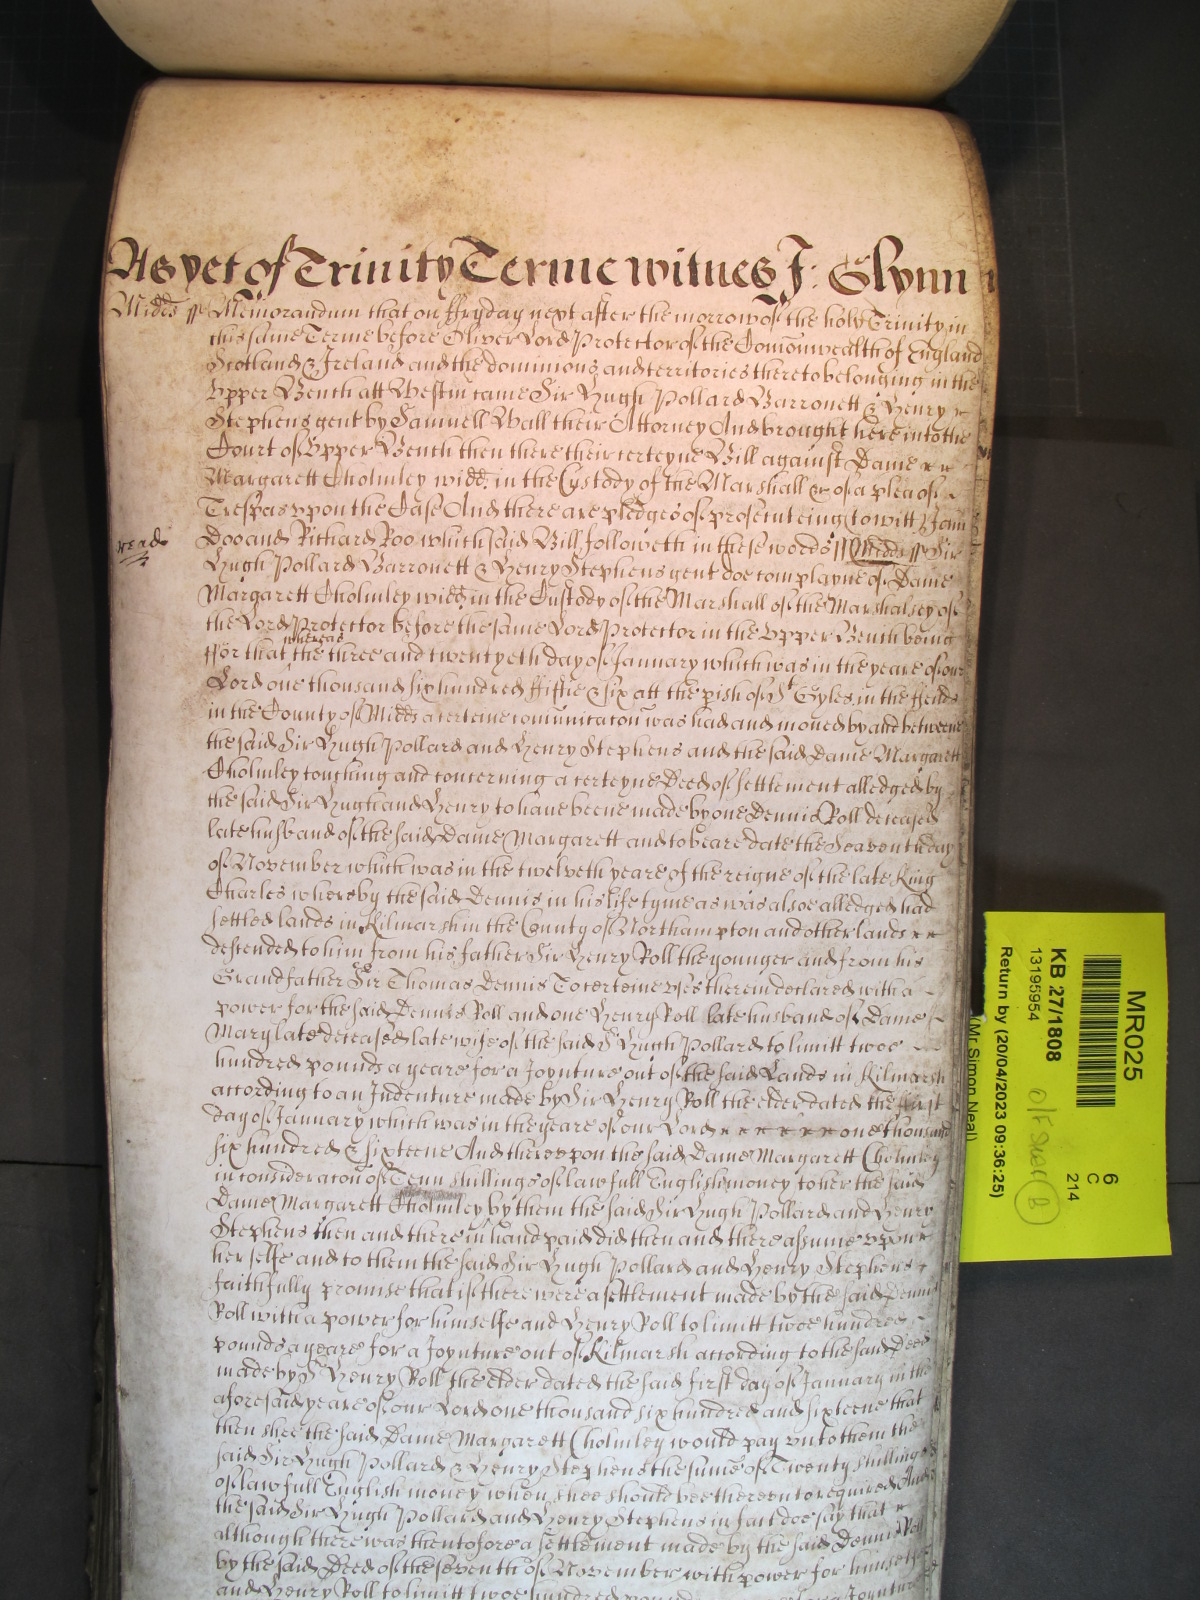 As yet of Trinity Terme witnes J: Glynn
Midds ss Memorandum that on ffryday next after the morrow of the holy Trinity in
this same Terme before Oliver Lord Protector of the Comonwealth of England
Scotland & Ireland and the dominions and territories thereto belonging in the
Upper Bench att Westm came Sir Hugh Pollard Barronett & Henry
Stephens gent by Samuell Wall their Attorney And brought here into the
Court of Upper Bench then there their certeyne Bill against Dame
Margarett Cholmley widd. in the Custody of the Marshall &c of a plea of
Trespas upon the Case And there are pledges of prosecuteing to witt John
Doo and Richard Roo which said Bill followeth in these words ss Midds ss Sir
Hugh Pollard Barronett & Henry Stephens gent doe complayne of Dame
Margarett Cholmley widd. in the Custody of the Marshall of the Marshalsey of
the Lord Protector before the same Lord Protector in the Upper Bench being
ffor that whereas the three and twentyeth day of January which was in the yeare of our
Lord one thousand six hundred fiftie & six att the pish of St Gyles in the ffields
in the County of Midds a certeine comunicacon was had and moved by and betweene
the said Sir Hugh Pollard and Henry Stephens and the said Dame Margarett
Cholmley touching and concerning a certeyne Deed of settlement alledged by
the said Sir Hugh and Henry to have beene made by one Dennis Roll deceased
late husband of the said Dame Margarett and to beare date the Seaventh day
of November which was in the twelveth yeare of the reigne of the late King
Charles whereby the said Dennis in his life tyme as was alsoe alledged had
settled lands in Kilmarsh in the County of Northampton and other lands
descended to him from his father Sir Henry Roll the younger and from his
Grandfather Sir Thomas Dennis To certeine uses therein declared with a
power for the said Dennis Roll and one Henry Roll late husband of Dame
Mary late deceased late wife of the said Sr Hugh Pollard to limitt twoe
hundred pounds a yeare for a Joynture out of the said Lands in Kilmarsh
according to an Indenture made by Sir Henry Roll the elder dated the first
day of January which was in the yeare of our Lord one thousand
six hundred & sixteene And thereupon the said Dame Margarett Cholmley
in consideracon of Tenn shillings of lawfull English money to her the said
Dame Margarett Cholmley by them the said Sir Hugh Pollard and Henry
Stephens then and there in hand paid did then and there assume upon
her selfe and to them the said Sir Hugh Pollard and Henry Stephens
faithfully promise that if there were a settlement made by the said Dennis
Roll with a power for himselfe and Henry Roll to limitt twoe hundred
pounds a yeare for a Joynture out of Kilmarsh according to the said Deed
made by Sr Henry Roll the elder dated the said first day of January in the
aforesaid yeare of our Lord one thousand six hundred and sixteene that
then shee the said Dame Margarett Cholmley would pay unto them the
said Sir Hugh Pollard & Henry Stephens the sume of Twenty shillings
of lawfull English money when shee should bee thereunto required And
the said Sir Hugh Pollard and Henry Stephens in fact doe say that
although there was then tofore a settlement made by the said Dennis Roll
by the said Deed of the seventh of November with power for himselfe
and Henry Roll to limitt twoe hundred pounds
MR025
KB 27/1808
13195954
Return by (20/04/2023 09:36:25)
(Mr Simon Neal)
6
C
214